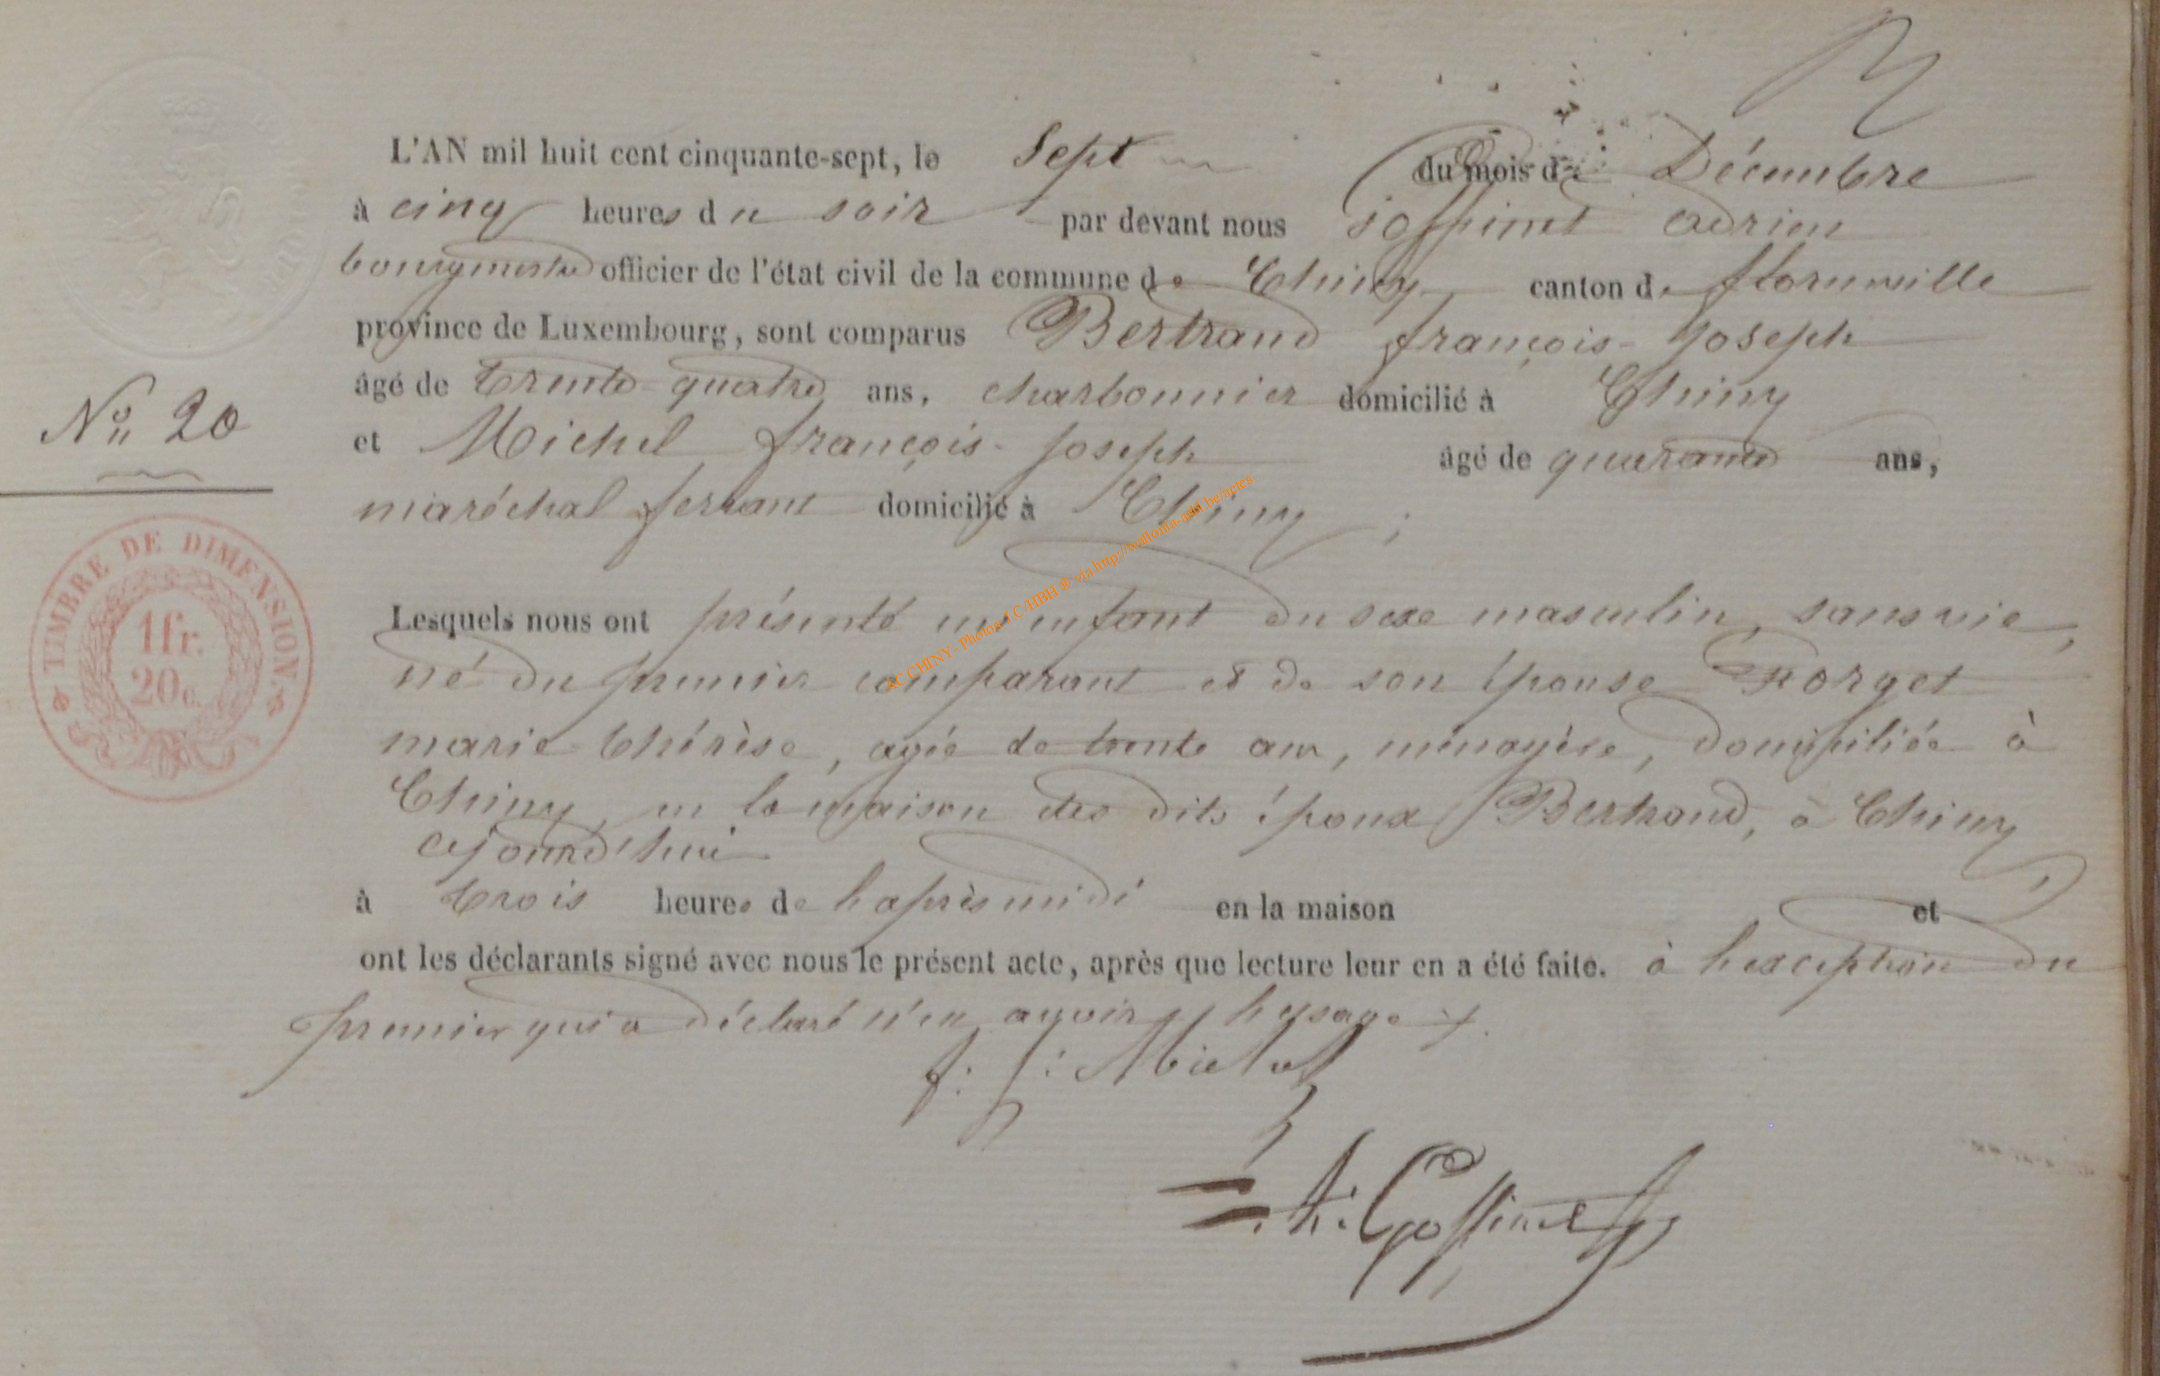 L'AN mil huit cent cinquante-sept, le Sept du mois de Décembre
à cinq heures du soir par devant nous Goffinet Adrien
bourgmestre officier de l'état civil de la commune de Chiny canton de florenville
province de Luxembourg, sont comparus Bertrand françois-Joseph
âgé de trente quatre ans, charbonnier domicilié à Chiny
No 20
et Michel françois-Joseph âgé de quarante ans,
maréchal ferrant domicilié à Chiny ;
TIMBRE DE DIMENSION
1 fr.
20 c.
Lesquels nous ont présenté un enfant du sexe masculin, sans vie,
né du premier comparant et de son épouse Forget
marie thérèse, agée de trente ans, ménagère, domiciliée à
Chiny, en la maison des dits époux Bertrand, à Chiny
cejourd'hui
à trois heures de l'après midi en la maison et
ont les déclarants signé avec nous le présent acte, après que lecture leur en a été faite. à l'exception du
premier qui a déclaré n'en avoir l'usage
f: J: Michel
A. Goffinet
AC CHINY- Photos LC/HBH ® via http://wallonia-asbl.be/actes